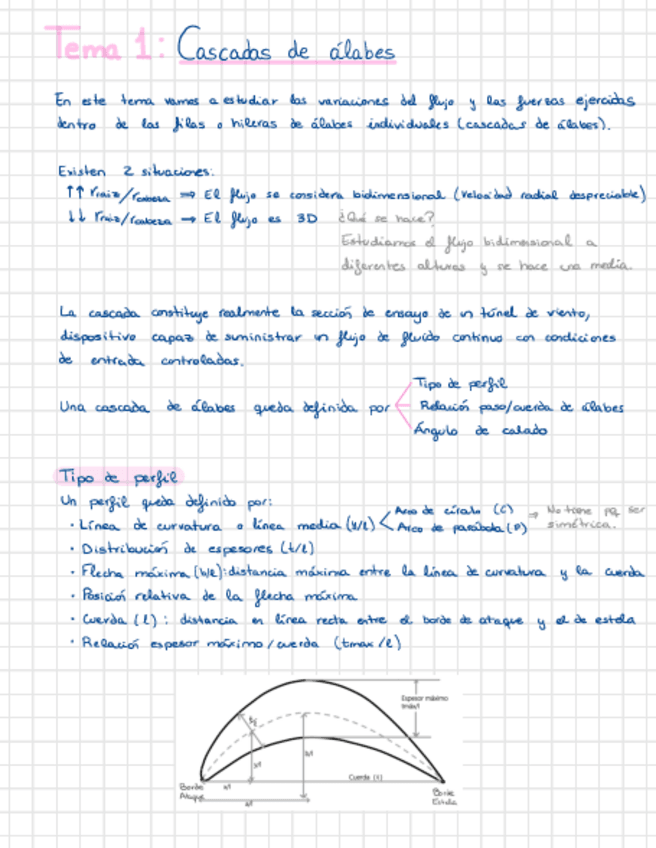 Tema 1: Cascadas de álabes
En este tema vamos a estudiar las variaciones del flujo y las fuerzas ejercidas
dentro de las filas o hileras de álabes individuales (cascadas de álabes).
Existen 2 situaciones:
↑↑ rraiz/rcabeza ⇒ El flujo se considera bidimensional (velocidad radial despreciable)
↓↓ rraiz/rcabeza → El flujo es 3D ¿Qué se hace?
Estudiamos el flujo bidimensional a
diferentes alturas y se hace una media.
La cascada constituye realmente la sección de ensayo de un túnel de viento,
dispositivo capaz de suministrar un flujo de fluido continuo con condiciones
de entrada controladas.
Tipo de perfil
Una cascada de álabes queda definida por Relación paso/cuerda de álabes
Ángulo de calado
Tipo de perfil
Un perfil queda definido por:
Arco de círculo (C) ⇒ No tiene pq ser
· Línea de curvatura o línea media (y/l) Arco de parábola (P) simétrica.
· Distribución de espesores (t/l)
· Flecha máxima (b/l): distancia máxima entre la línea de curvatura y la cuerda
· Posición relativa de la flecha máxima
· Cuerda (l): distancia en línea recta entre el borde de ataque y el de estela
· Relación espesor máximo/cuerda (tmax/l)
Espesor máximo
tmax/l
b/l
y/l
Cuerda (l)
Borde
Ataque
x/l
Borde
Estela
a/l